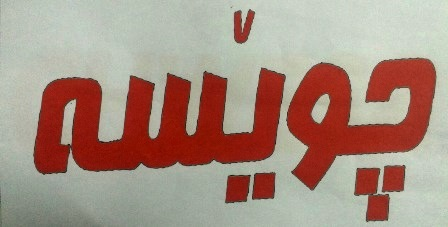 چوێسە